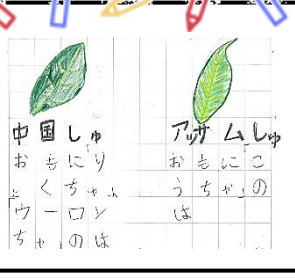 中国しゅ
おもにり
ょくちゃ、
ウーロン
ちゃのは
アッサムしゅ
おもにこ
うちゃの
は